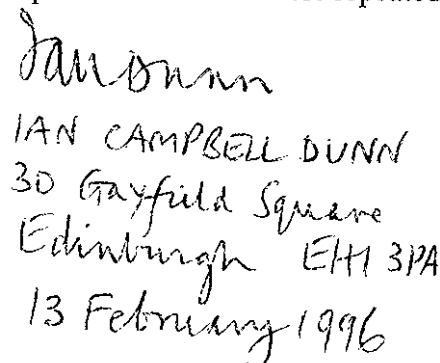 Ian Dunn
IAN CAMPBELL DUNN
30 Gayfield Square
Edinburgh EH1 3PA
13 February 1996